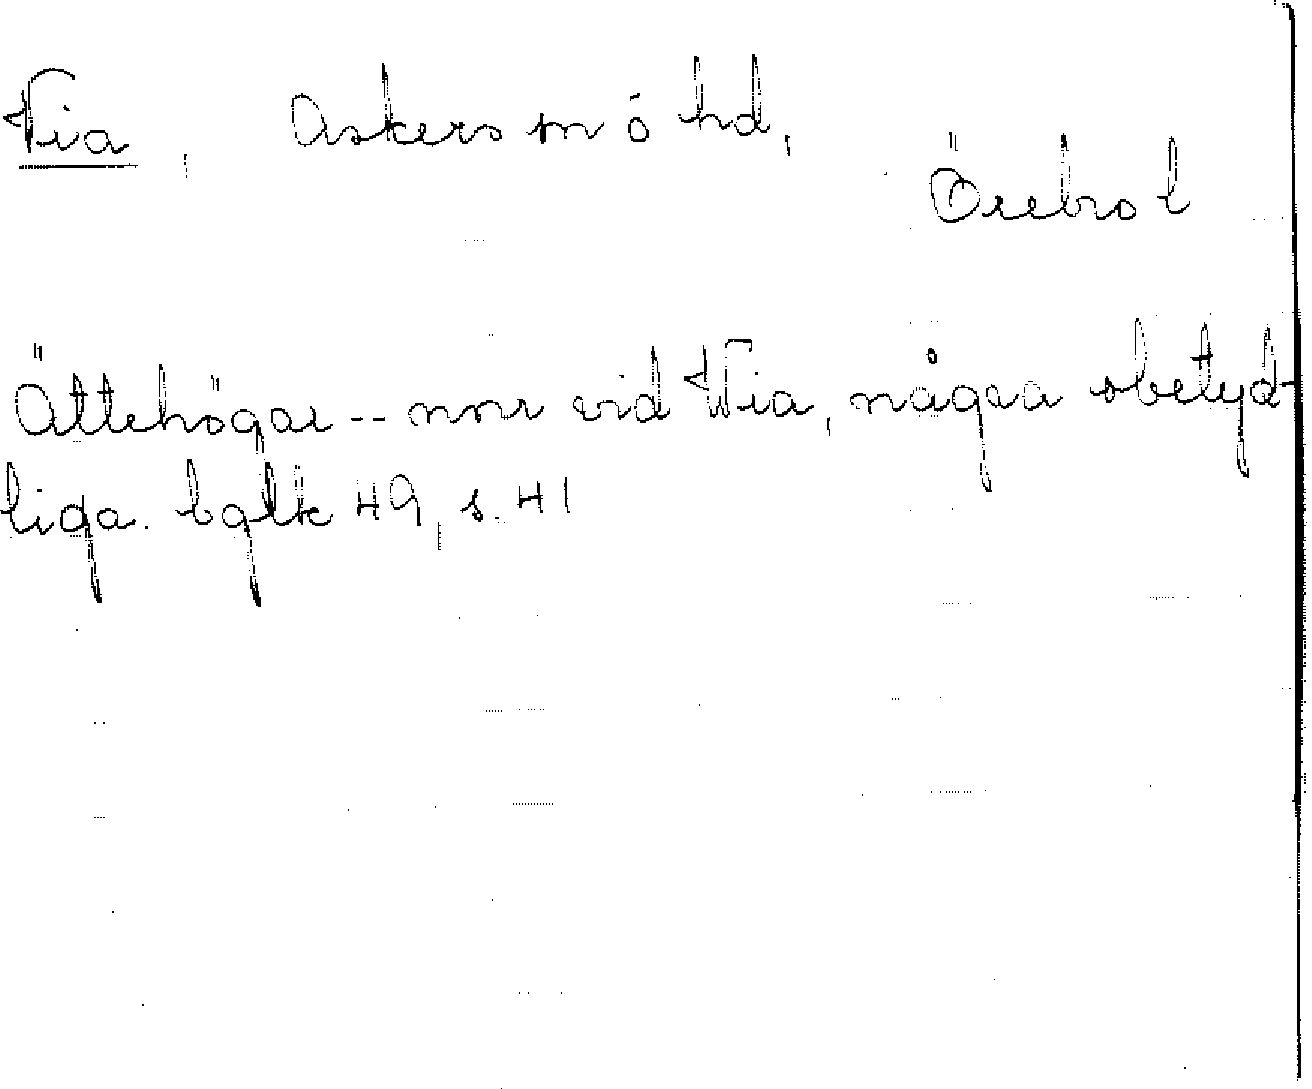 Via, Askers sn o hd,
Örebro l
Ättehögar -- nnr vid Via, några obetyd-
liga. bglk 49, s. 41